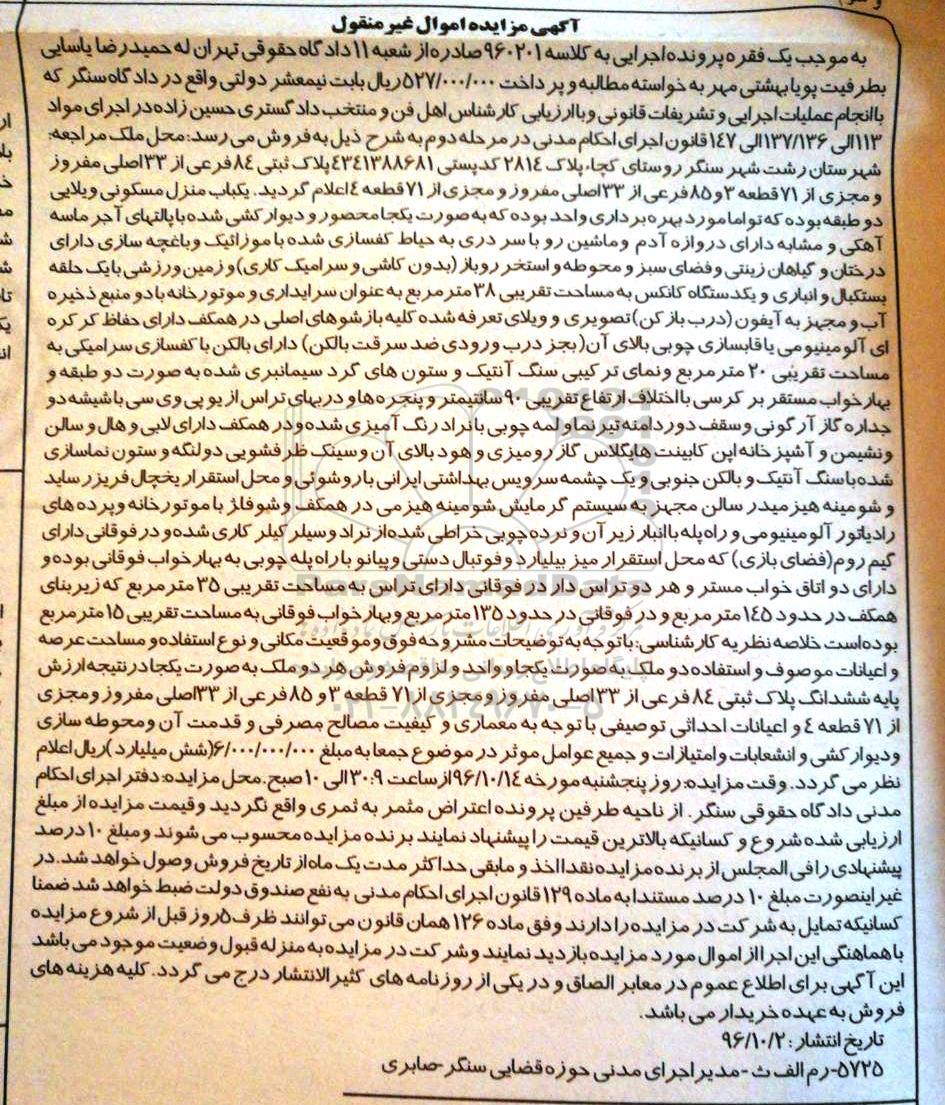 آگهی مزایده اموال غیر منقول
به موجب یک فقره پرونده اجرایی به کلاسه ۹۶۰۲۰۱ صادره از شعبه ۱۱ دادگاه حقوقی تهران له حمیدرضا یاسایی
بطرفیت پویا بهشتی مهر به خواسته مطالبه و پرداخت ۵۲۷/۰۰۰/۰۰۰ ریال بابت نیمعشر دولتی واقع در دادگاه سنگر که
باانجام عملیات اجرایی و تشریفات قانونی و باارزیابی کارشناس اهل فن و منتخب دادگستری حسین زاده در اجرای مواد
۱۱۳الی ۱۳۷/۱۳۶الی ۱۴۷ قانون اجرای احکام مدنی در مرحله دوم به شرح ذیل به فروش می رسد: محل ملک مراجعه:
شهرستان رشت شهر سنگر روستای کچا، پلاک ۲۸۱۴ کدپستی ۴۳۴۱۳۸۸۶۸۱ پلاک ثبتی ۸۴ فرعی از ۳۳ اصلی مفروز
و مجزی از ۷۱ قطعه ۳ و ۸۵ فرعی از ۳۳ اصلی مفروز و مجزی از ۷۱ قطعه ۴ اعلام گردید. یکباب منزل مسکونی ویلایی
دو طبقه بوده که تواما مورد بهره برداری واحد بوده که به صورت یکجا محصور و دیوارکشی شده با پالتهای آجر ماسه
آهکی و مشابه دارای دروازه آدم و ماشین رو با سر دری به حیاط کفسازی شده با موزائیک و باغچه سازی دارای
درختان و گیاهان زینتی و فضای سبز و محوطه و استخر روباز (بدون کاشی و سرامیک کاری) و زمین ورزشی با یک حلقه
بستکبال و انباری و یکدستگاه کانکس به مساحت تقریبی ۳۸ متر مربع به عنوان سرایداری و موتورخانه با دو منبع ذخیره
آب و مجهز به آیفون (درب بازکن) تصویری و ویلای تعرفه شده کلیه بازشوهای اصلی در همکف دارای حفاظ کرکره
ای آلومینیومی یا قابسازی چوبی بالای آن (بجز درب ورودی ضد سرقت بالکن) دارای بالکن با کفسازی سرامیکی به
مساحت تقریبی ۲۰ متر مربع و نمای ترکیبی سنگ آنتیک و ستون های گرد سیمانبری شده به صورت دو طبقه و
بهارخواب مستقر بر کرسی با اختلاف ارتفاع تقریبی ۹۰ سانتیمتر و پنجره ها و دربهای تراس از یو پی وی سی با شیشه دو
جداره گاز آرگونی و سقف دور دامنه تیرنما و لمه چوبی با نراد رنگ آمیزی شده و در همکف دارای لابی و هال و سالن
و نشیمن و آشپزخانه اپن کابینت هایگلاس گاز رومیزی و هود بالای آن و سینک ظرفشویی دو لنگه و ستون نماسازی
شده با سنگ آنتیک و بالکن جنوبی و یک چشمه سرویس بهداشتی ایرانی با روشوئی و محل استقرار یخچال فریزر ساید
و شومینه هیزمی در سالن مجهز به سیستم گرمایش شومینه هیزمی در همکف و شوفاژ با موتورخانه و پرده های
رادیاتور آلومینیومی و راه پله با انبار زیر آن و نرده چوبی خراطی شده از نراد و سیلر کیلر کاری شده و در فوقانی دارای
گیم روم (فضای بازی) که محل استقرار میز بیلیارد و فوتبال دستی و پیانو با راه پله چوبی به بهارخواب فوقانی بوده و
دارای دو اتاق خواب مستر و هر دو تراس دار در فوقانی دارای تراس به مساحت تقریبی ۳۵ متر مربع که زیربنای
همکف در حدود ۱۴۵ متر مربع و در فوقانی در حدود ۱۳۵ متر مربع و بهارخواب فوقانی به مساحت تقریبی ۱۵ متر مربع
بوده است خلاصه نظریه کارشناسی: با توجه به توضیحات مشروحه فوق و موقعیت مکانی و نوع استفاده و مساحت عرصه
و اعیانات موصوف و استفاده دو ملک به صورت یکجا و واحد و لزوم فروش هر دو ملک به صورت یکجا در نتیجه ارزش
پایه ششدانگ پلاک ثبتی ۸۴ فرعی از ۳۳ اصلی مفروز و مجزی از ۷۱ قطعه ۳ و ۸۵ فرعی از ۳۳ اصلی مفروز و مجزی
از ۷۱ قطعه ۴ و اعیانات احداثی توصیفی با توجه به معماری و کیفیت مصالح مصرفی و قدمت آن و محوطه سازی
و دیوارکشی و انشعابات و امتیازات و جمیع عوامل موثر در موضوع جمعا به مبلغ ۶/۰۰۰/۰۰۰/۰۰۰ (شش میلیارد) ریال اعلام
نظر می گردد. وقت مزایده: روز پنجشنبه مورخه ۹۶/۱۰/۱۴ از ساعت ۳۰:۹ الی ۱۰ صبح. محل مزایده: دفتر اجرای احکام
مدنی دادگاه حقوقی سنگر. از ناحیه طرفین پرونده اعتراض مثمر به ثمری واقع نگردید و قیمت مزایده از مبلغ
ارزیابی شده شروع و کسانیکه بالاترین قیمت را پیشنهاد نمایند برنده مزایده محسوب می شوند و مبلغ ۱۰ درصد
پیشنهادی را فی المجلس از برنده مزایده نقدا اخذ و مابقی حداکثر مدت یک ماه از تاریخ فروش وصول خواهد شد. در
غیر اینصورت مبلغ ۱۰ درصد مستندا به ماده ۱۲۹ قانون اجرای احکام مدنی به نفع صندوق دولت ضبط خواهد شد ضمنا
کسانیکه تمایل به شرکت در مزایده را دارند وفق ماده ۱۲۶ همان قانون می توانند ظرف ۵ روز قبل از شروع مزایده
با هماهنگی این اجرا از اموال مورد مزایده بازدید نمایند و شرکت در مزایده به منزله قبول وضعیت موجود می باشد
این آگهی برای اطلاع عموم در معابر الصاق و در یکی از روزنامه های کثیرالانتشار درج می گردد. کلیه هزینه های
فروش به عهده خریدار می باشد.
تاریخ انتشار: ۹۶/۱۰/۲
۵۷۲۵-رم الف ث - مدیر اجرای مدنی حوزه قضایی سنگر - صابری
ParsNamadData
۰۲۱-۸۸۳۴۹۶۷۰-۵